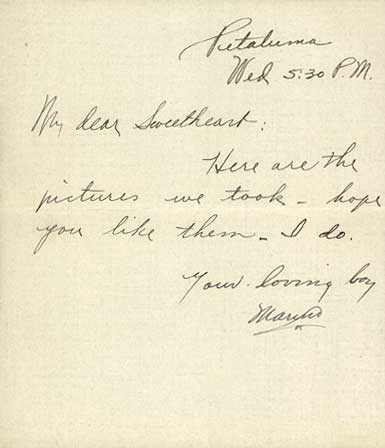 Petaluma
Wed 5:30 P.M.
My dear Sweetheart:
Here are the
pictures we took – hope
you like them – I do.
Your loving boy